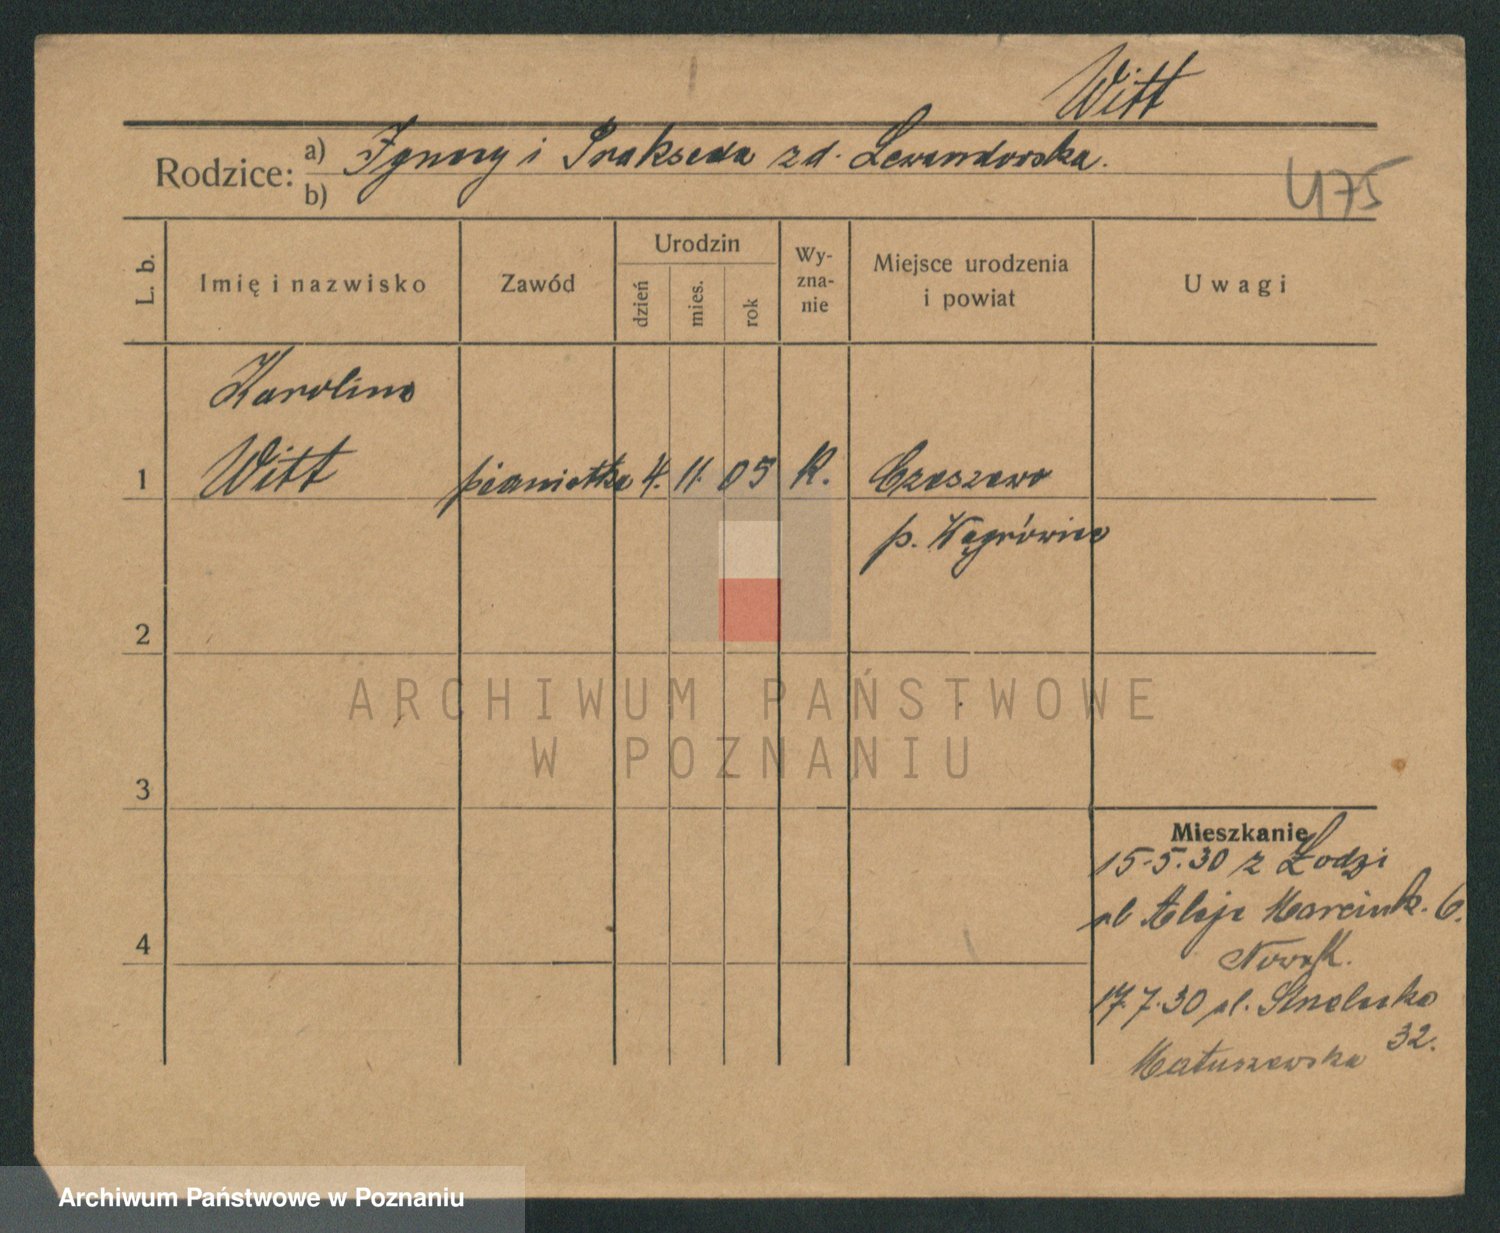 Witt
Rodzice: a) Ignacy i Prakseda zd. Lewandowska.
b)
475
L. b.
Imię i nazwisko
Zawód
Urodzin
dzień
mies.
rok
Wy-
zna-
nie
Miejsce urodzenia
i powiat
Uwagi
Karolina
1 Witt pianistka 4. 11. 05 K. Czeszewo
p. Wągrówiec
2
3
4
ARCHIWUM PAŃSTWOWE
W POZNANIU
Mieszkanie
15.5.30 z Łodzi
ul Aleje Marcink. 6.
Nowak.
17.7.30 ul. Strzelecka
32.
Matuszewska
Archiwum Państwowe w Poznaniu